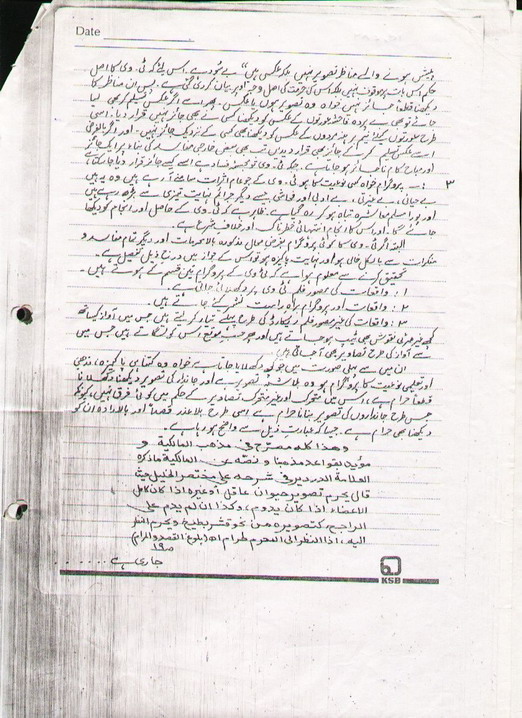 Date
پیش ہونے والے مناظر تصویر نہیں بلکہ عکس ہیں" بے سود ہے۔ اس لئے کہ ٹی۔ وی کا اصل
حکم اس بات پر موقوف نہیں بلکہ اسکی حرمت کی اصل وجہ اوپر بیان کر دی گئی ہے۔ پس ان مناظر کا
دیکھنا قطعاً جائز نہیں خواہ وہ تصویر ہوں یا عکس۔ پھر اسے اگر عکس تسلیم کر بھی لیا
جائے تو بھی بے پردہ فاحشہ عورتوں کے عکس کو دیکھنا کسی نے بھی جائز نہیں قرار دیا۔ اسی
طرح عورتوں کیلئے غیر مردوں کے عکس کو دیکھنا بھی کسی کے نزدیک جائز نہیں۔ اور اگر بالفرض
اسے عکس تسلیم کر کے جائز بھی قرار دیں تب بھی بعض خارجی مفاسد کی بناء پر ایک جائز
اور مباح کام ناجائز ہو جاتا ہے۔ جبکہ ٹی۔ وی تو مخزن فساد ہے اسے کیسے جائز قرار دیا جا سکتا،
۳ :۔ پروگرام خواہ کسی نوعیت کا ہو ٹی۔ وی کے جو عام اثرات سامنے آ رہے ہیں وہ یہ ہیں
بے حیائی، بے غیرتی، بے ادبی اور فحاشی جیسے دیگر جرائم نہایت تیزی سے بڑھ رہے ہیں
اور پورا مسلم معاشرہ تباہ ہو کر رہ گیا ہے۔ ظاہر ہے کہ ٹی۔ وی کے حاصل اور انجام کو دیکھا
جائے گا۔ اور اس کا انجام انتہائی خطرناک اور خلاف شرع ہے۔
البتہ اگر ٹی۔ وی کا کوئی پروگرام بفرض محال مذکورہ بالا وجوہات اور دیگر تمام مفاسد و
منکرات سے بالکل خالی ہو اور نہایت پاکیزہ ہو تو اس کے جواز میں درج ذیل تفصیل ہے۔
تحقیق کرنے سے معلوم ہوا ہے کہ ٹی وی کے پروگرام تین قسم کے ہوتے ہیں۔
۱: واقعات کی مصور فلم ٹی وی پر دکھلائی جاتی ہے۔
۲: واقعات اور پروگرام براہ راست نشر کئے جاتے ہیں۔
۳: واقعات کی غیر مصور فلم ریکارڈ کی طرح پہلے تیار کر لیتے ہیں جس میں آواز کیساتھ
کچھ غیر مرئی نقوش بھی ثبت ہو جاتے ہیں اور حسب موقع اس کو لگاتے ہیں جس میں
سے آواز کی طرح تصاویر بھی آ جاتی ہیں۔
ان میں سے پہلی صورت میں جو کچھ دکھلایا جاتا ہے خواہ وہ کتنا ہی پاکیزہ، مذہبی
اور تعلیمی نوعیت کا پروگرام ہو وہ بلاشبہ تصویر ہے اور جاندار کی تصویر دیکھنا دکھلانا
قطعاً حرام ہے، اس میں متحرک اور غیر متحرک تصاویر کے حکم میں کوئی فرق نہیں، کیونکہ
جس طرح جانداروں کی تصویر بنانا حرام ہے اسی طرح بلا عذر قصداً اور بالارادہ ان کو
دیکھنا بھی حرام ہے۔ جیسا کہ عبارت ذیل سے واضح ہو رہا ہے۔
وهذا كله مصرح في مذهب المالكية و
مؤيد لقواعد مذهبنا و نصه عن المالكية ما ذكره
العلامة الدردير في شرحه على مختصر الخليل حيث
قال يحرم تصوير حيوان عاقل أو غيره اذا كان كامل
الاعضاء اذا كان يدوم، و كذا ان لم يدم على
الراجح، كتصويره من نحو قشر بطيخ، و يحرم النظر
اليه، اذ النظر الى المحرم حرام اھ (بلوغ القصد والمرام)
ص۱۹
جاری ہے
KSB